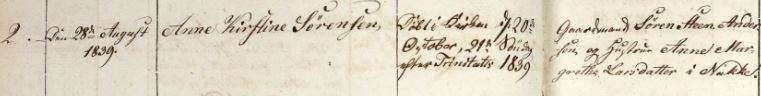 2. Den 28de August 1839. Anne Kirstine Sörensen, Döbt i Kirken d. 20de Gaardmand Sören Steen Ander-
October, 21de Söndag sen og Hustrue Anne Mar-
efter Trinitatis 1839 grethe Larsdatter i Nakke.